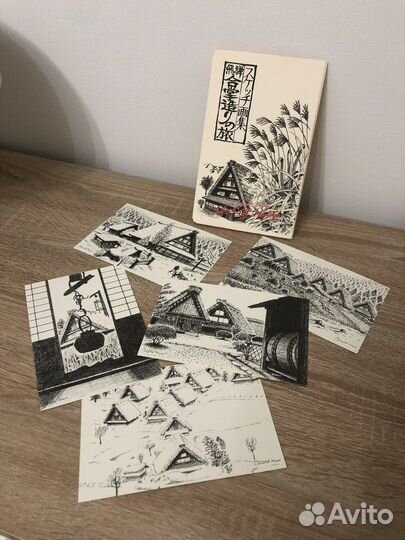 スケッチ画集
飛騨
合掌造りの旅
Avito